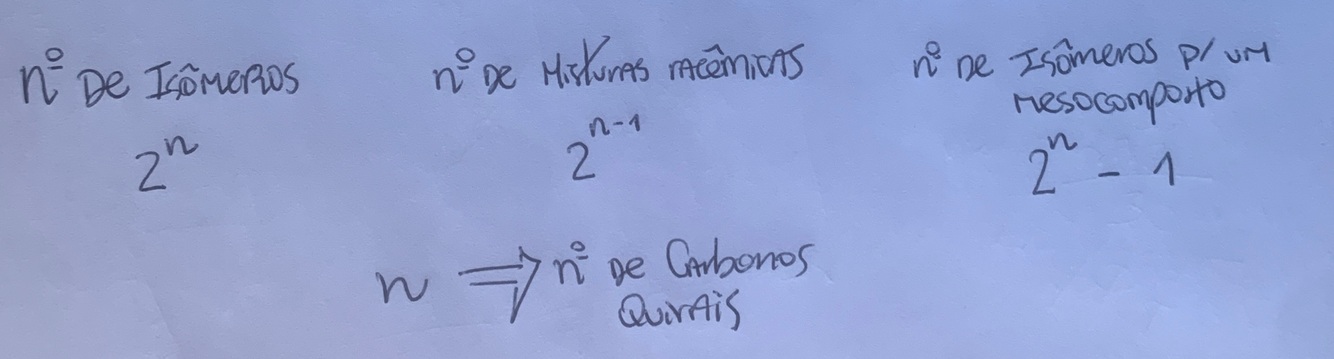 nº De Isômeros
2^n
nº De Misturas racêmicas
2^{n-1}
nº De Isômeros p/ um
mesocomposto
2^n - 1
n ⇒ nº De Carbonos
Quirais